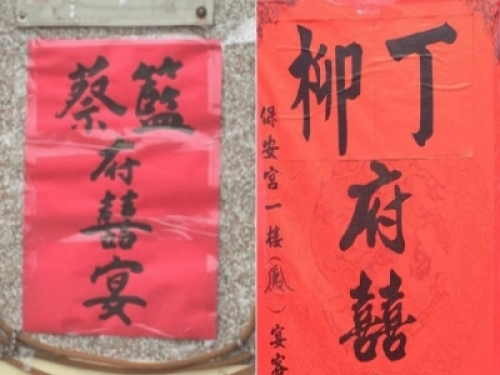 籃蔡
府
囍
宴
丁柳
府
囍
保安宮一樓（）宴客